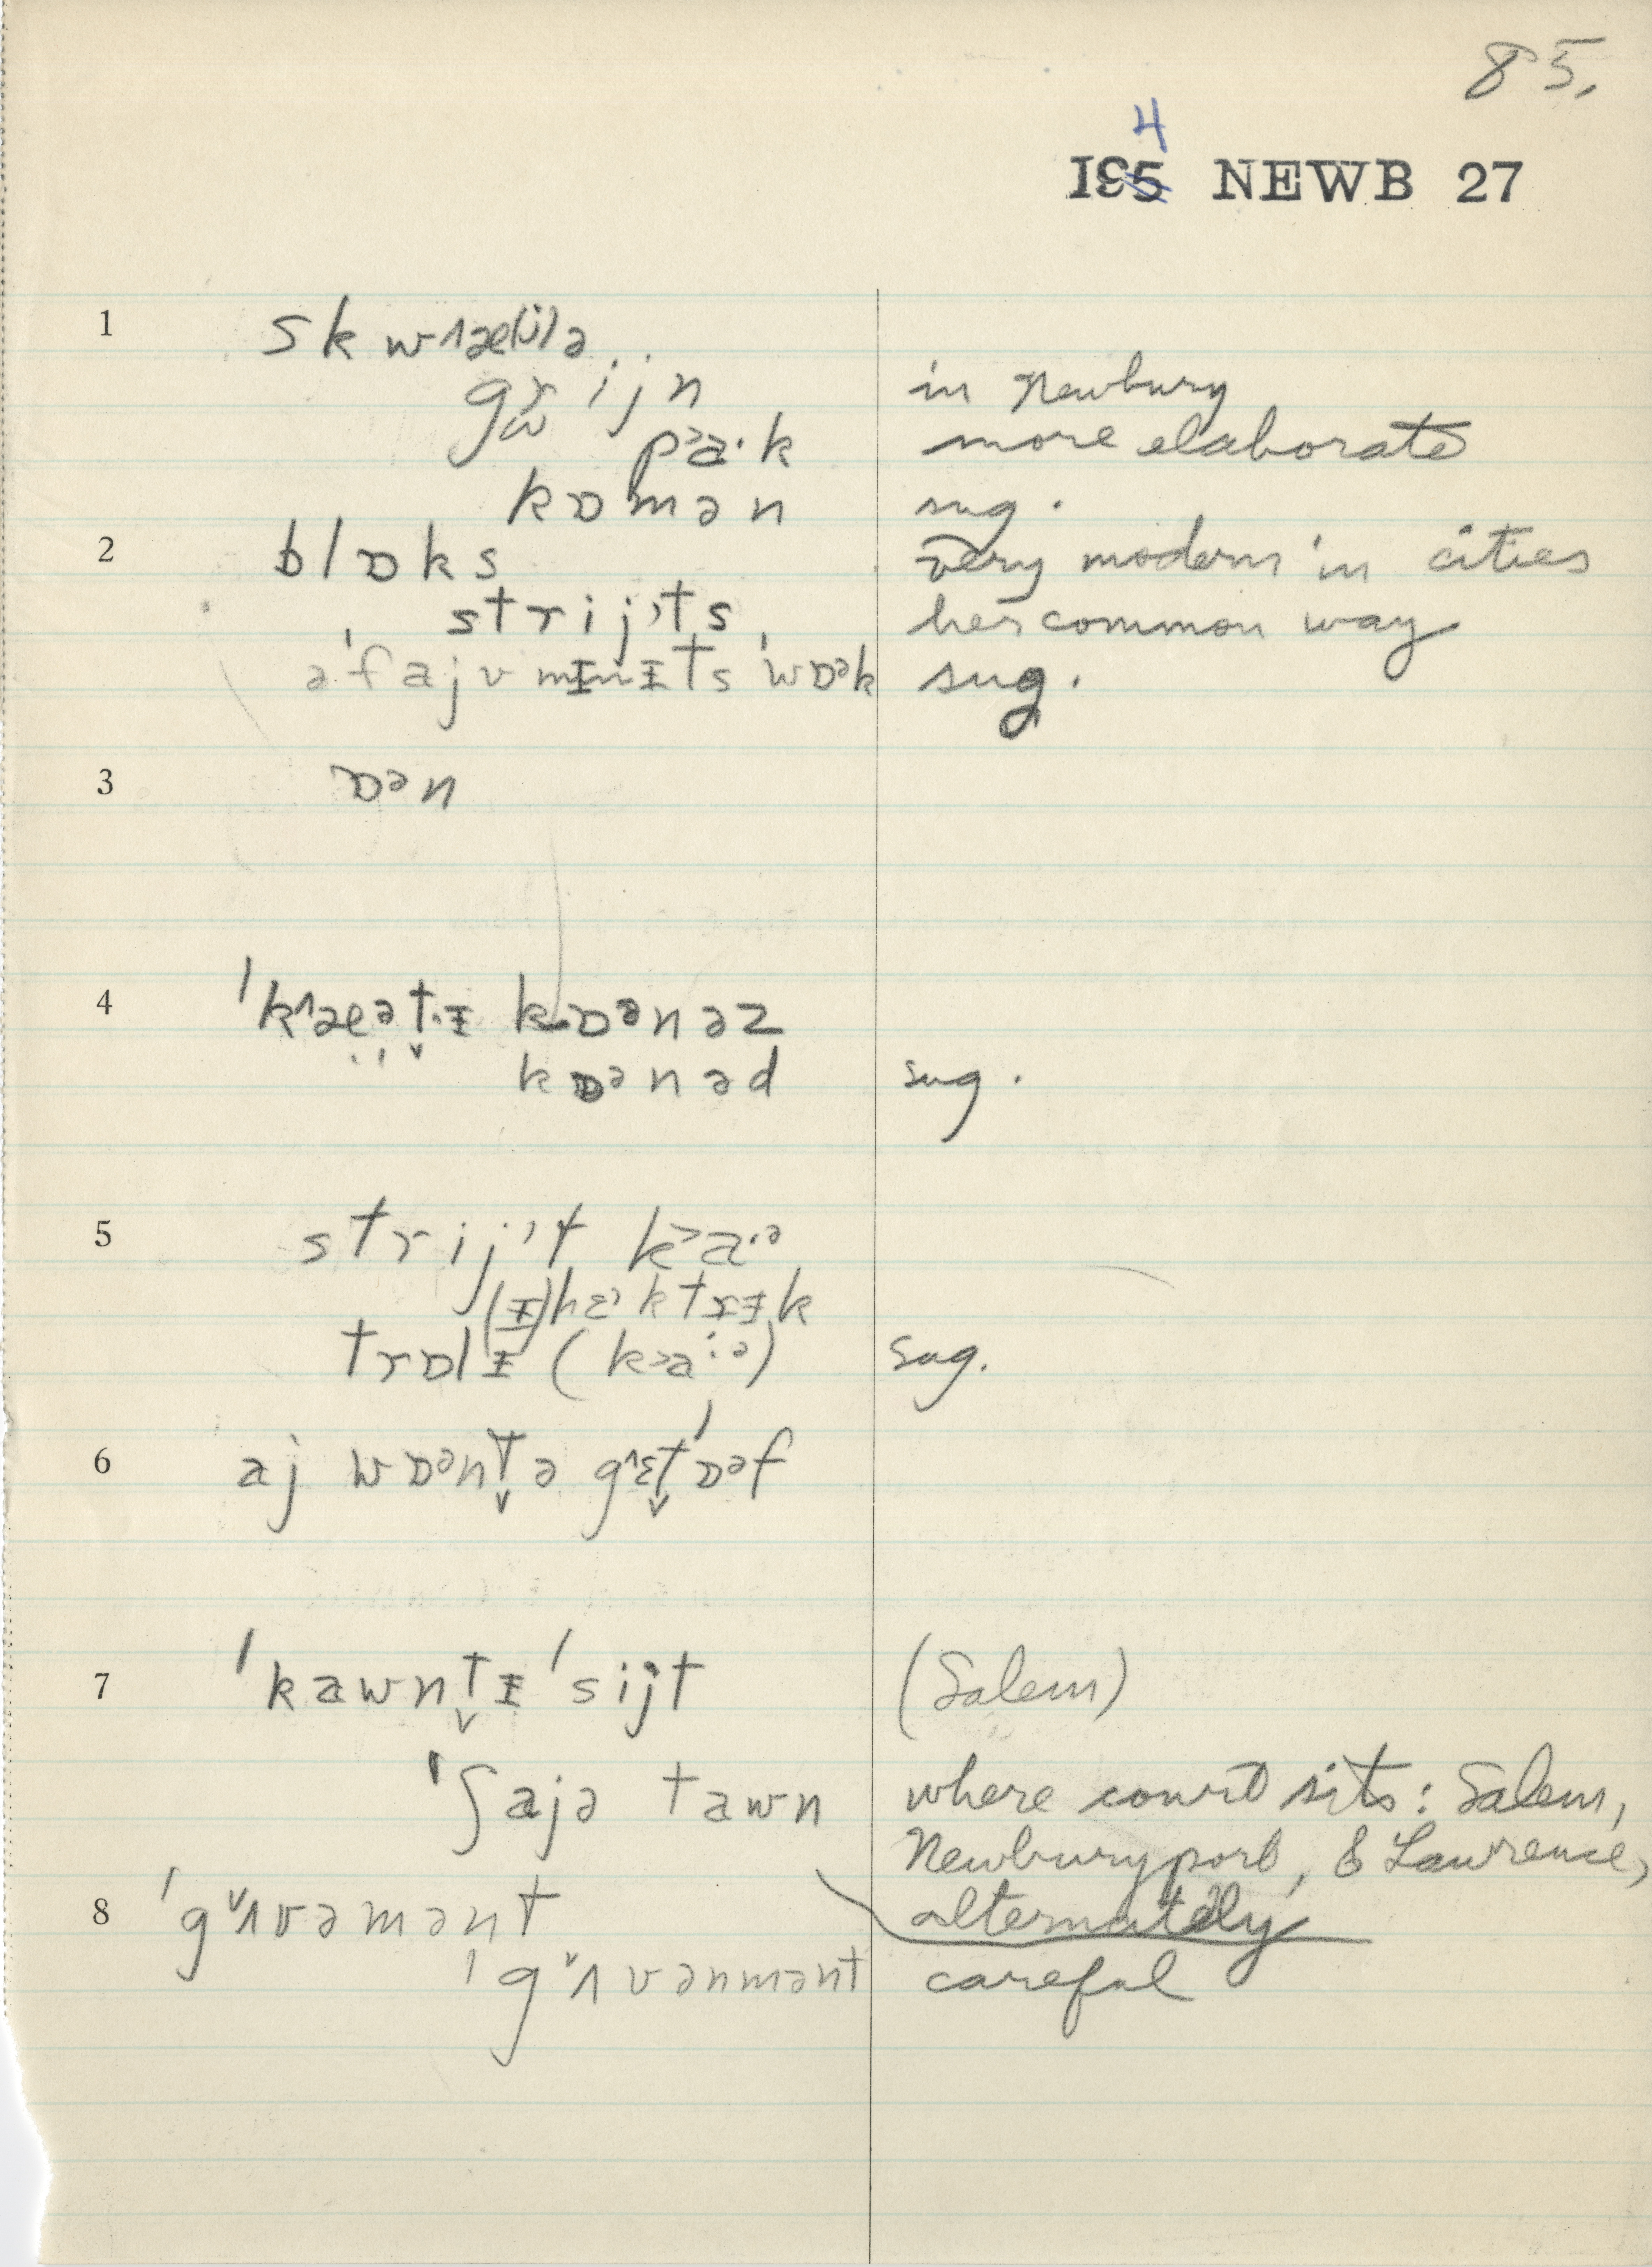 85.
4
195 NEWB 27
1 skw˄æ(j)ə
gr̯ijn in Newbury
p˃a·k more elaborate
kɒmən sug.
2 blɒks very modern in cities
strij˒ts her common way
ə'fajv mɪnɪts 'wɒᵊk sug.
3 ɒᵊn
4 'k˄æᵊt̬ɪ kɒᵊnəz
kɒᵊnəd sug.
5 strij˒t k˃a·ᵊ
(ɪ)lɛ˒ktrɪk
trɒlɪ (k˃a·ᵊ) sug.
6 aj wɒᵊnt̬ə g˄ɛt̬'ɒᵊf
7 'kawnt̬ɪ 'sijt (Salem)
'ʃajə tawn where court sits: Salem,
Newburyport, & Lawrence,
alternately
8 'g˅ʌvəmənt
'g˅ʌvənmənt careful